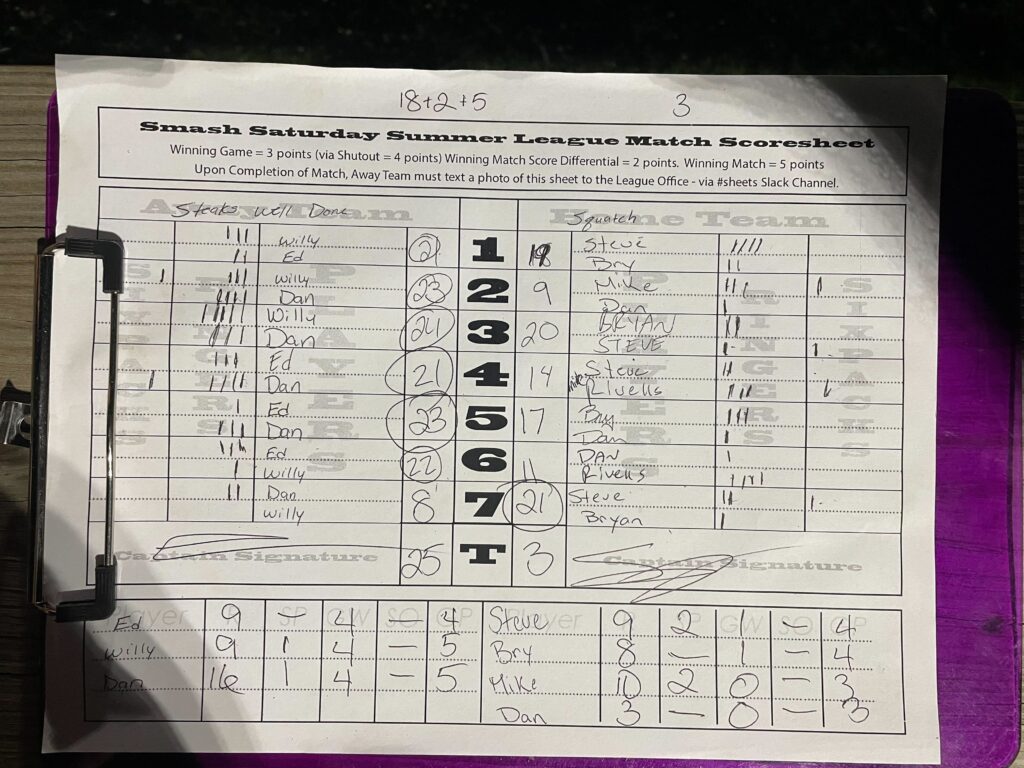 18+2+5 3
Smash Saturday Summer League Match Scoresheet
Winning Game = 3 points (via Shutout = 4 points) Winning Match Score Differential = 2 points. Winning Match = 5 points
Upon Completion of Match, Away Team must text a photo of this sheet to the League Office - via #sheets Slack Channel.
Away Team Home Team
Steaks Well Done Squatch
Willy 21 1 18 Steve
Ed Bry
Willy 23 2 9 Mike
Dan Dan
Willy 21 3 20 BRYAN
Dan STEVE
Ed 21 4 14 Steve
Dan Mike Rivells
Ed 23 5 17 Bry
Dan Dan
Ed 22 6 11 DAN
Willy Rivells
Dan 8 7 21 Steve
Willy Bryan
SIXPACKS RINGERS PLAYERS PLAYERS RINGERS SIXPACKS
Captain Signature 25 T 3 Captain Signature
Player R SP GW SO GP Player R SP GW SO GP
Ed 9 - 4 - 4 Steve 9 2 1 - 4
Willy 9 1 4 - 5 Bry 8 - 1 - 4
Dan 16 1 4 - 5 Mike 10 2 0 - 3
Dan 3 - 0 - 3